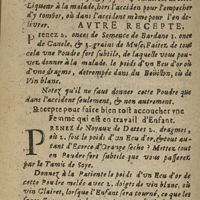 Liqueur à la malade, hors l'accident pour l'empécher
d'y tomber, où dans l'accident même pour l'en de-
livrer.
AUTRE RECEPTE.
PRenez 2. onces de Semence de Bardane 1. once
de Canele, & 3. grains de Musc. Faites de tout
cela une Poudre fort subtile, de laquelle vous pou-
vez donner à la malade, le poids d'un Ecu d'or où
d'une dragme, detrempée dans du Boüillon, où de
Vin blanc.
Notez qu'il ne faut donner cette Poudre que
dans l'accident seulement, & non autrement.
Recepte pour faire bien tost accoucher une
Femme qui est en travail d'Enfant.
PRenez de Noyaux de Dattes 2. dragmes,
où 2. fois le poids d'un Ecu d'or, & tout au-
tant d'Ecorce d'Orange seche? Mettez tout
en Poudre fort subtile que vous passerez
par le Tamis de Soye.
Donnez à la Patiente le poids d'un Ecu d'or de
cette Poudre mêlée avec 2. doigts de vin blanc, où
vin Clairet, lorsque l'Enfant sera tourné, ce que les